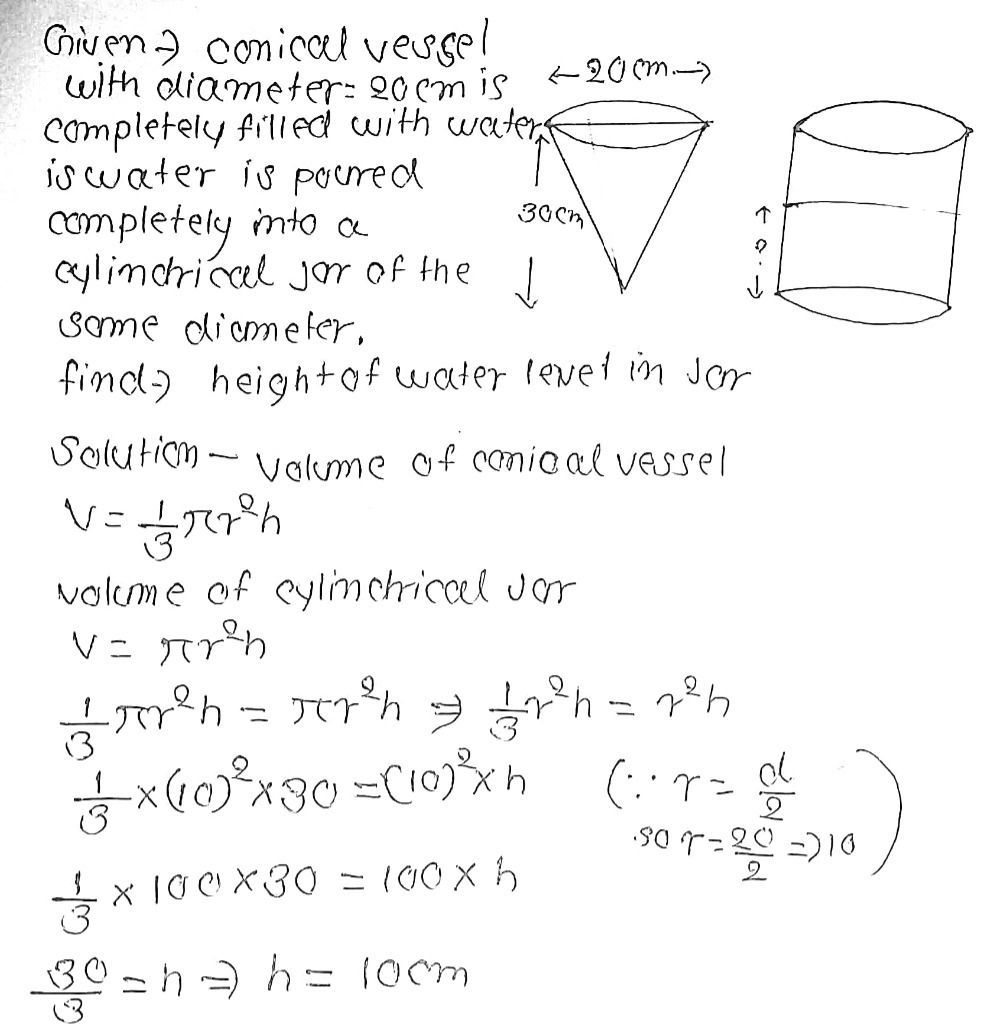 Given → conical vessel
with diameter = 20cm is
← 20cm →
completely filled with water
is water is poured
completely into a
30cm
cylindrical jar of the
?
same diameter.
find → height of water level in Jar
Solution — volume of conical vessel
V = 1/3 πr²h
volume of cylindrical Jar
V = πr²h
1/3 πr²h = πr²h ⇒ 1/3 r²h = r²h
1/3 × (10)² × 30 = (10)² × h (∵ r = d/2
so r = 20/2 ⇒ 10)
1/3 × 100 × 30 = 100 × h
30/3 = h ⇒ h = 10cm